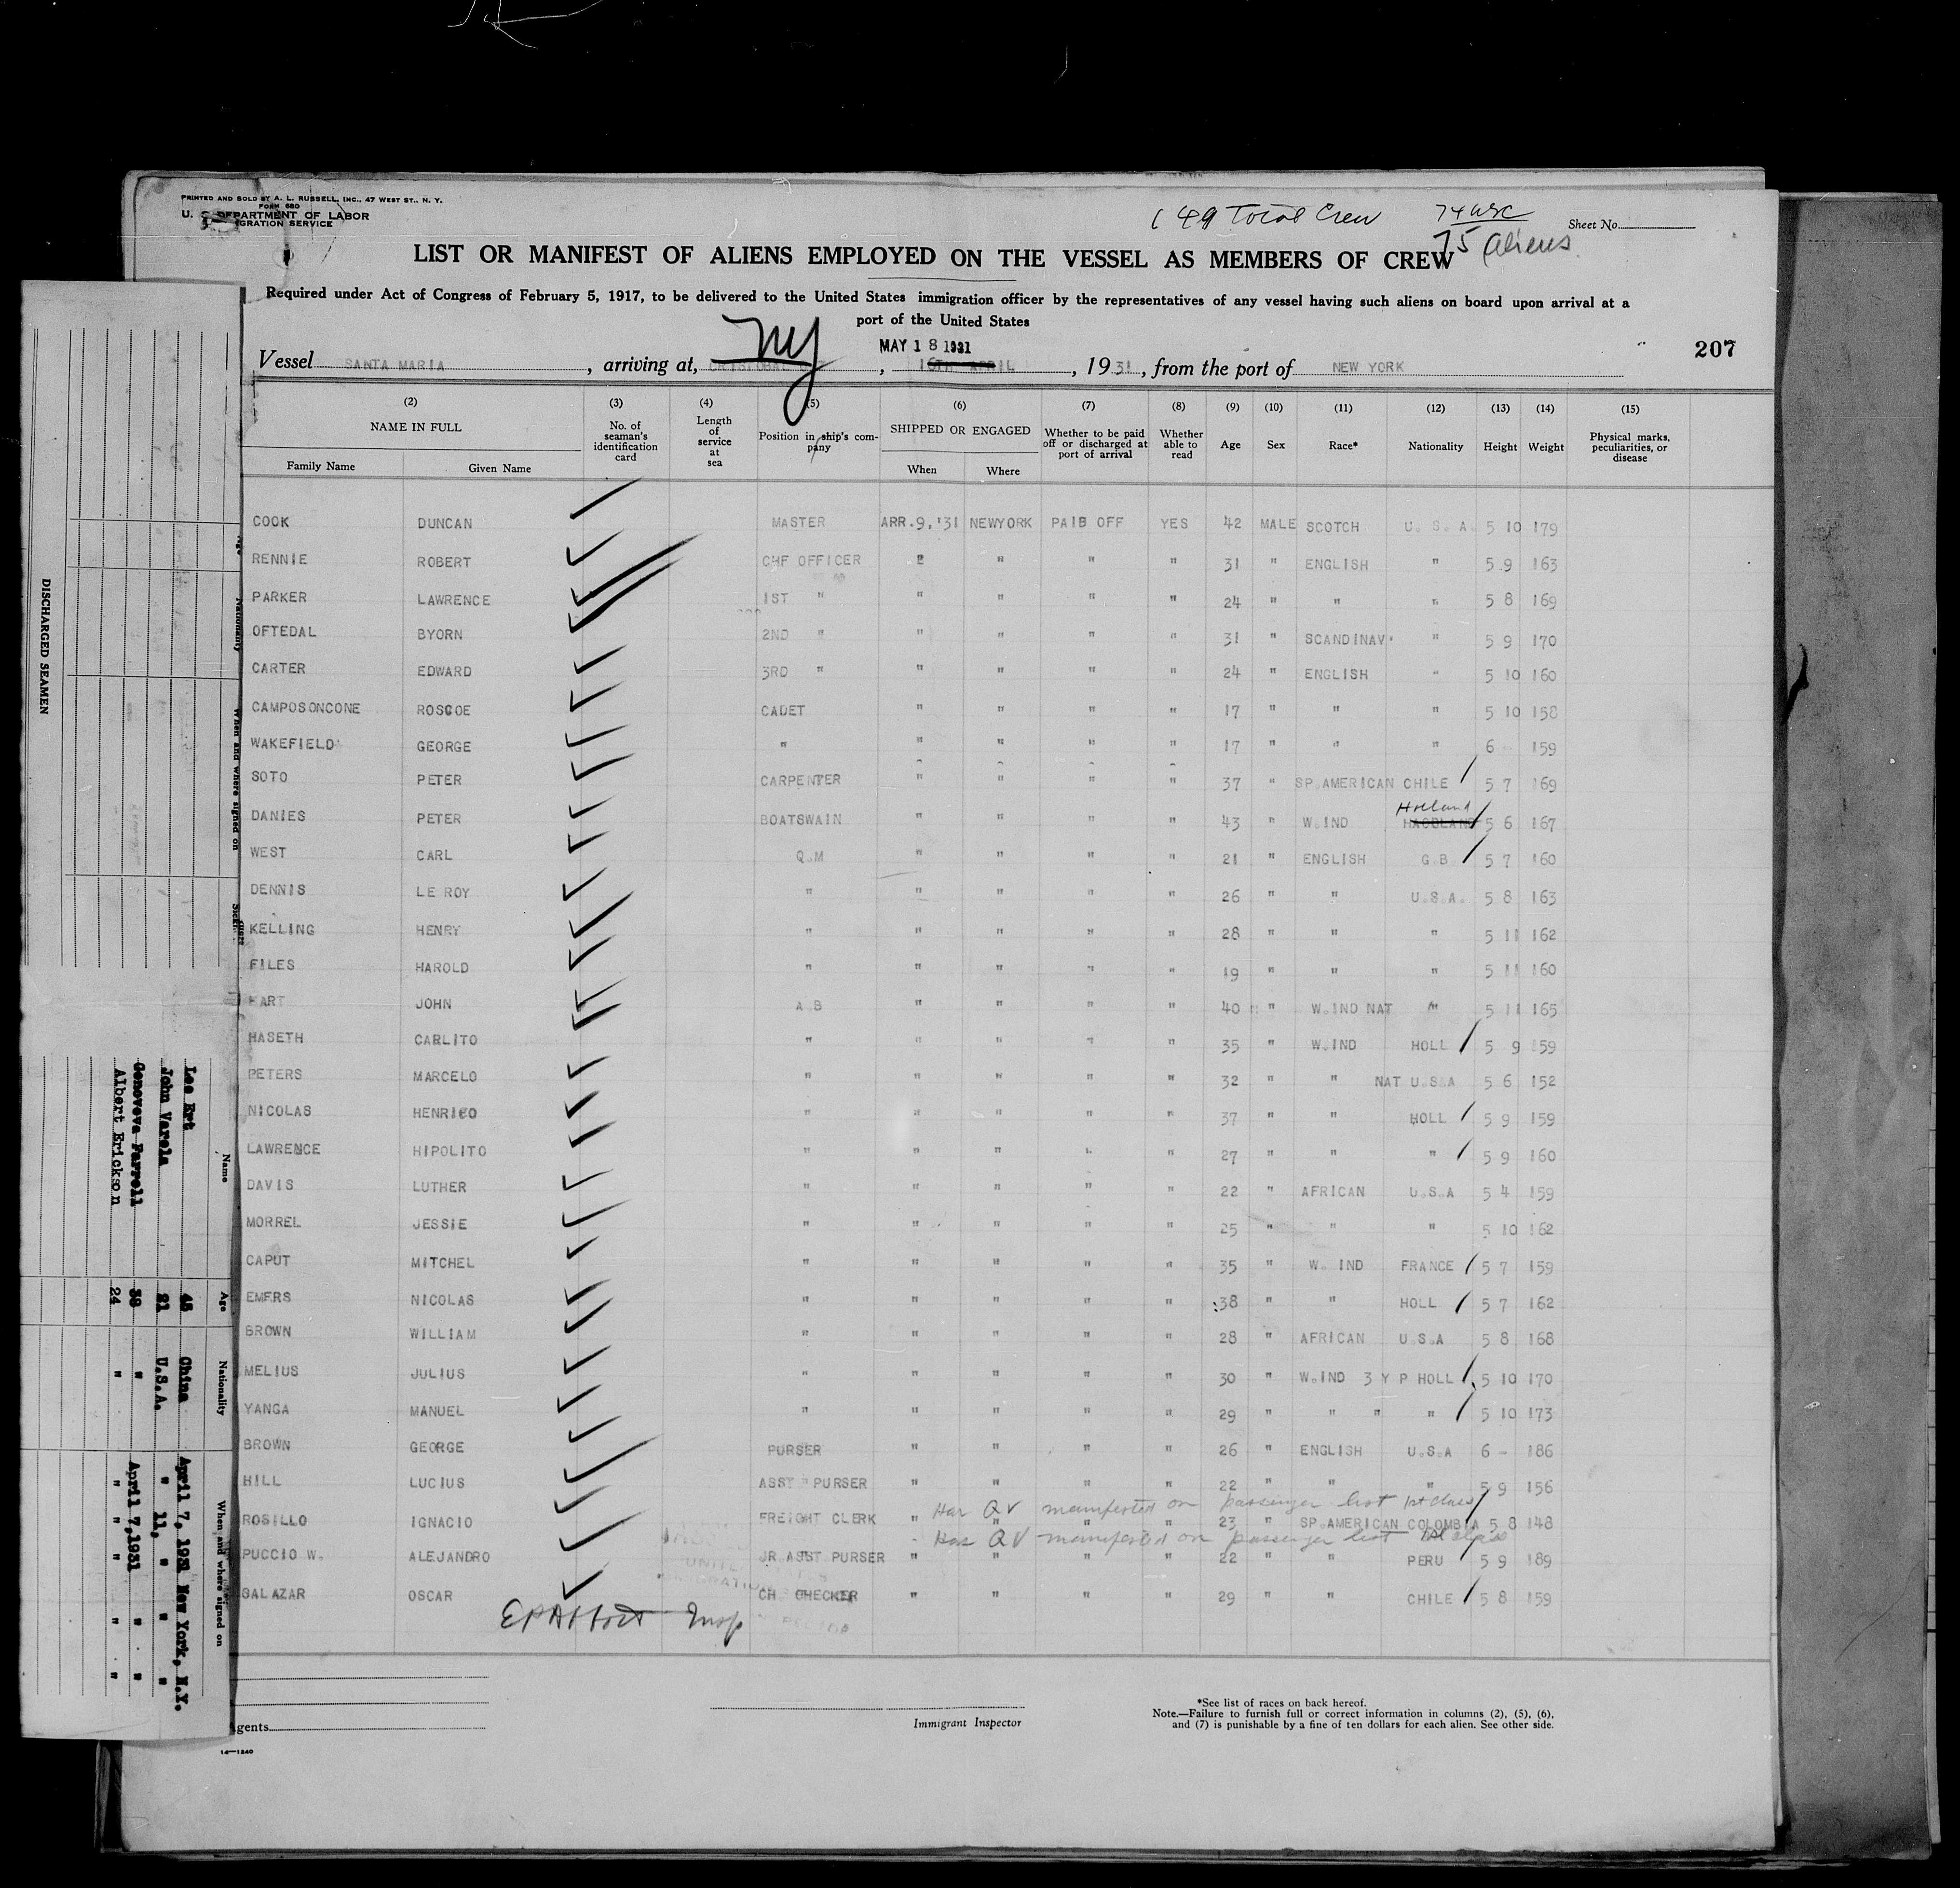 PRINTED AND SOLD BY A. L. RUSSELL, INC., 47 WEST ST., N. Y.
FORM 680
U. S. DEPARTMENT OF LABOR
IGRATION SERVICE
149 Total Crew 74 USC
75 Aliens
Sheet No.
LIST OR MANIFEST OF ALIENS EMPLOYED ON THE VESSEL AS MEMBERS OF CREW
Required under Act of Congress of February 5, 1917, to be delivered to the United States immigration officer by the representatives of any vessel having such aliens on board upon arrival at a
port of the United States
NY MAY 18 1931
207
Vessel SANTA MARIA , arriving at, CRISTOBAL , 16TH APRIL , 1931, from the port of NEW YORK
(2) (3) (4) (5) (6) (7) (8) (9) (10) (11) (12) (13) (14) (15)
NAME IN FULL No. of seaman's identification card Length of service at sea Position in ship's company SHIPPED OR ENGAGED Whether to be paid off or discharged at port of arrival Whether able to read Age Sex Race* Nationality Height Weight Physical marks, peculiarities, or disease
Family Name Given Name When Where
COOK DUNCAN MASTER ARR.9,'31 NEWYORK PAIB OFF YES 42 MALE SCOTCH U.S.A. 5 10 179
RENNIE ROBERT CHF OFFICER " " " " 31 " ENGLISH " 5 9 163
PARKER LAWRENCE 1ST " " " " " 24 " " " 5 8 169
OFTEDAL BYORN 2ND " " " " " 31 " SCANDINAV. " 5 9 170
CARTER EDWARD 3RD " " " " " 24 " ENGLISH " 5 10 160
CAMPOSONCONE ROSCOE CADET " " " " 17 " " " 5 10 158
WAKEFIELD GEORGE " " " " " 17 " " " 6 159
SOTO PETER CARPENTER " " " " 37 " SP.AMERICAN CHILE 5 7 169
DANIES PETER BOATSWAIN " " " " 43 " W.IND Holland 5 6 167
WEST CARL Q.M " " " " 21 " ENGLISH G.B. 5 7 160
DENNIS LE ROY " " " " " 26 " " U.S.A. 5 8 163
KELLING HENRY " " " " " 28 " " " 5 11 162
FILES HAROLD " " " " " 19 " " " 5 11 160
HART JOHN A B " " " " 40 " W.IND NAT " 5 11 165
HASETH CARLITO " " " " " 35 " W.IND HOLL 5 9 159
PETERS MARCELO " " " " " 32 " " NAT U.S.A 5 6 152
NICOLAS HENRICO " " " " " 37 " " HOLL 5 9 159
LAWRENCE HIPOLITO " " " " " 27 " " " 5 9 160
DAVIS LUTHER " " " " " 22 " AFRICAN U.S.A 5 4 159
MORREL JESSIE " " " " " 25 " " " 5 10 162
CAPUT MITCHEL " " " " " 35 " W. IND FRANCE 5 7 159
EMERS NICOLAS " " " " " 38 " " HOLL 5 7 162
BROWN WILLIAM " " " " " 28 " AFRICAN U.S.A 5 8 168
MELIUS JULIUS " " " " " 30 " W.IND 3 Y P HOLL 5 10 170
YANGA MANUEL " " " " " 29 " " " " 5 10 173
BROWN GEORGE PURSER " " " " 26 " ENGLISH U.S.A 6 - 186
HILL LUCIUS ASST " PURSER " " " " 22 " " " 5 9 156
Has QV manifested on passenger list 1st class
ROSILLO IGNACIO FREIGHT CLERK " " 23 " SP.AMERICAN COLOMBIA 5 8 148
Has QV manifested on passenger list 1st class
PUCCIO W. ALEJANDRO JR ASST PURSER " " " " 22 " " PERU 5 9 189
SALAZAR OSCAR CH CHECKER " " " " 29 " " CHILE 5 8 159
Insp
gents
Immigrant Inspector
*See list of races on back hereof.
Note.—Failure to furnish full or correct information in columns (2), (5), (6),
and (7) is punishable by a fine of ten dollars for each alien. See other side.
14—1240
DISCHARGED SEAMEN
Age Nationality When and where signed on
Name Age Nationality When and where signed on
Lee Ert 45 China April 7, 1931 New York, N.Y.
John Varela 21 U.S.A. " 11, " " "
Genoveva Farrell 38 " April 7,1931 " "
Albert Erickson 24 " " " " "